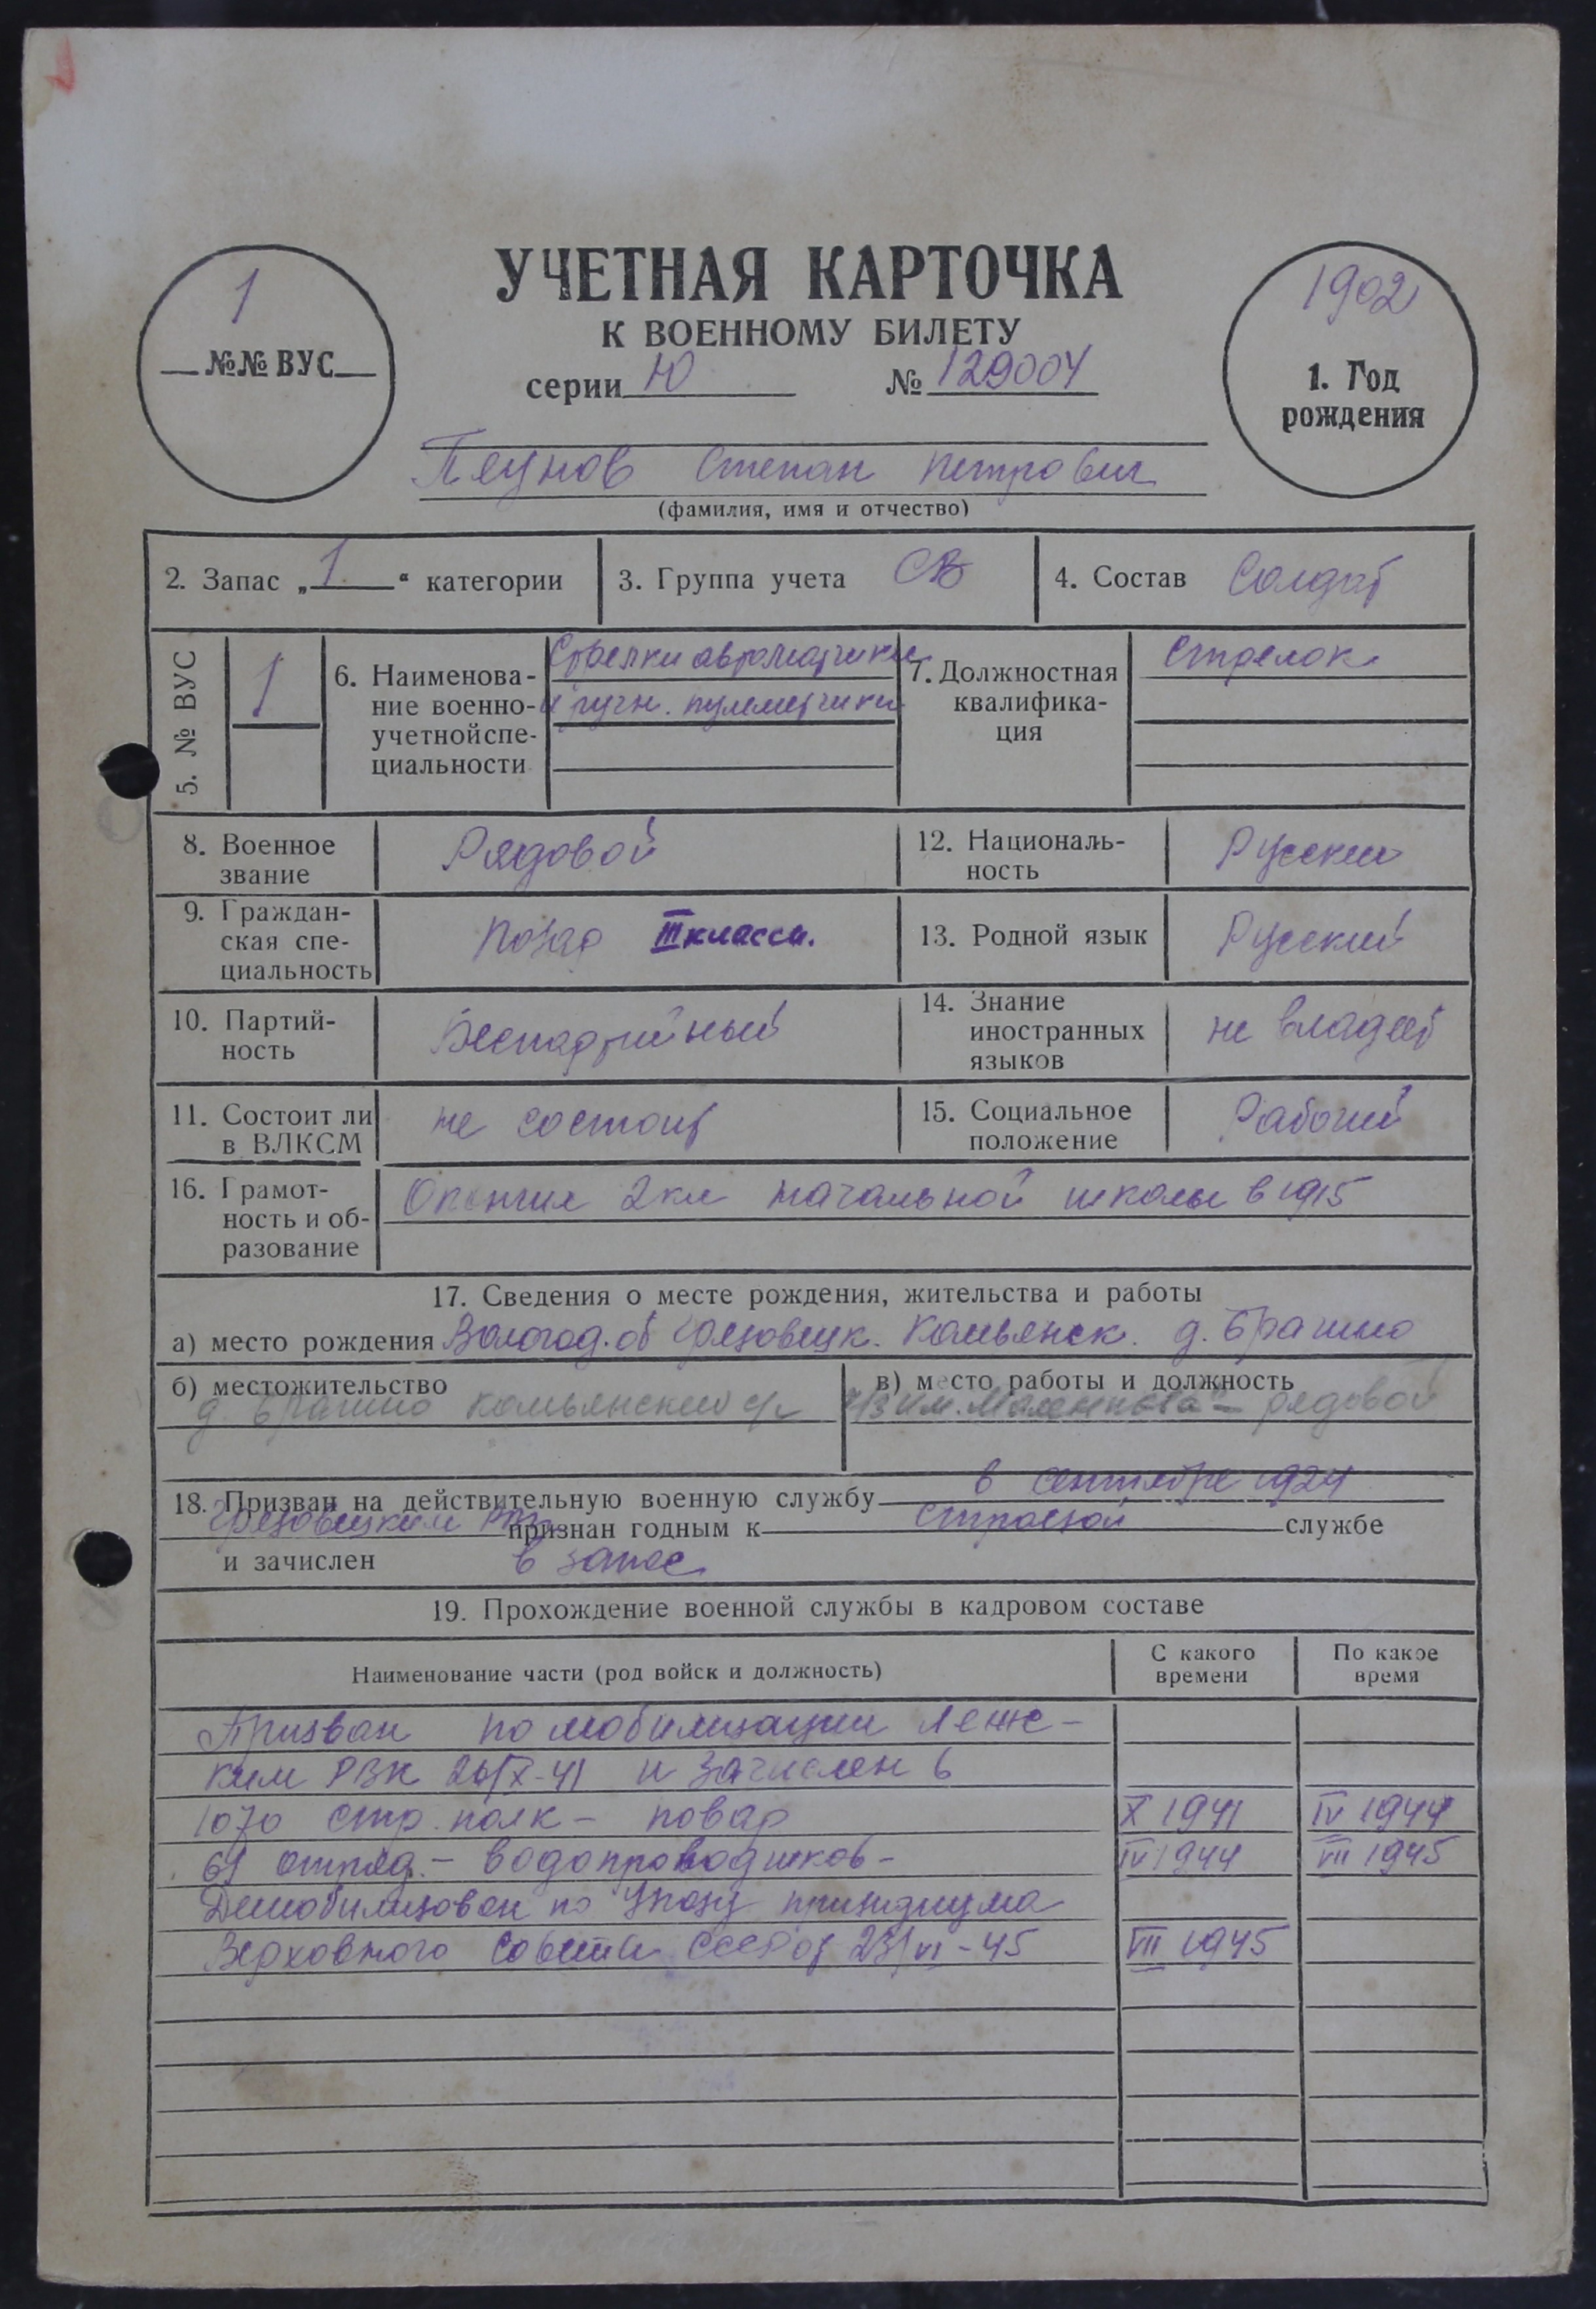 УЧЕТНАЯ КАРТОЧКА
К ВОЕННОМУ БИЛЕТУ
серии Ю № 129004
1
№№ ВУС
1902
1. Год
рождения
Степан Петрович
(фамилия, имя и отчество)
2. Запас „ 1 “ категории
3. Группа учета СВ
4. Состав Солдат
5. № ВУС
1
6. Наименова-
ние военно-
учетной спе-
циальности
Стрелки автоматчики
и ручн. пулеметчики
7. Должностная
квалифика-
ция
Стрелок
8. Военное
звание
Рядовой
12. Националь-
ность
Русский
9. Граждан-
ская спе-
циальность
Повар III класса.
13. Родной язык
Русский
10. Партий-
ность
Беспартийный
14. Знание
иностранных
языков
не владеет
11. Состоит ли
в ВЛКСМ
не состоит
15. Социальное
положение
Рабочий
16. Грамот-
ность и об-
разование
Окончил 2 кл начальной школы в 1915
17. Сведения о месте рождения, жительства и работы
а) место рождения Вологод. об Грязовецк. Комьянск. д.
б) местожительство
д. Комьянский с/с
в) место работы и должность
им. Маленкова - рядовой
18. Призван на действительную военную службу в сентябре 1924
Грязовецким признан годным к строевой службе
и зачислен в запас
19. Прохождение военной службы в кадровом составе
Наименование части (род войск и должность)
С какого
времени
По какое
время
Призван по мобилизации Леж-
ким РВК 26/X-41 и зачислен в
1070 стр. полк - повар X 1941 IV 1944
61 отряд - водопроводчиков - IV 1944 VII 1945
Демобилизован по Указу президиума
Верховного Совета СССР от 23/VI-45 VII 1945